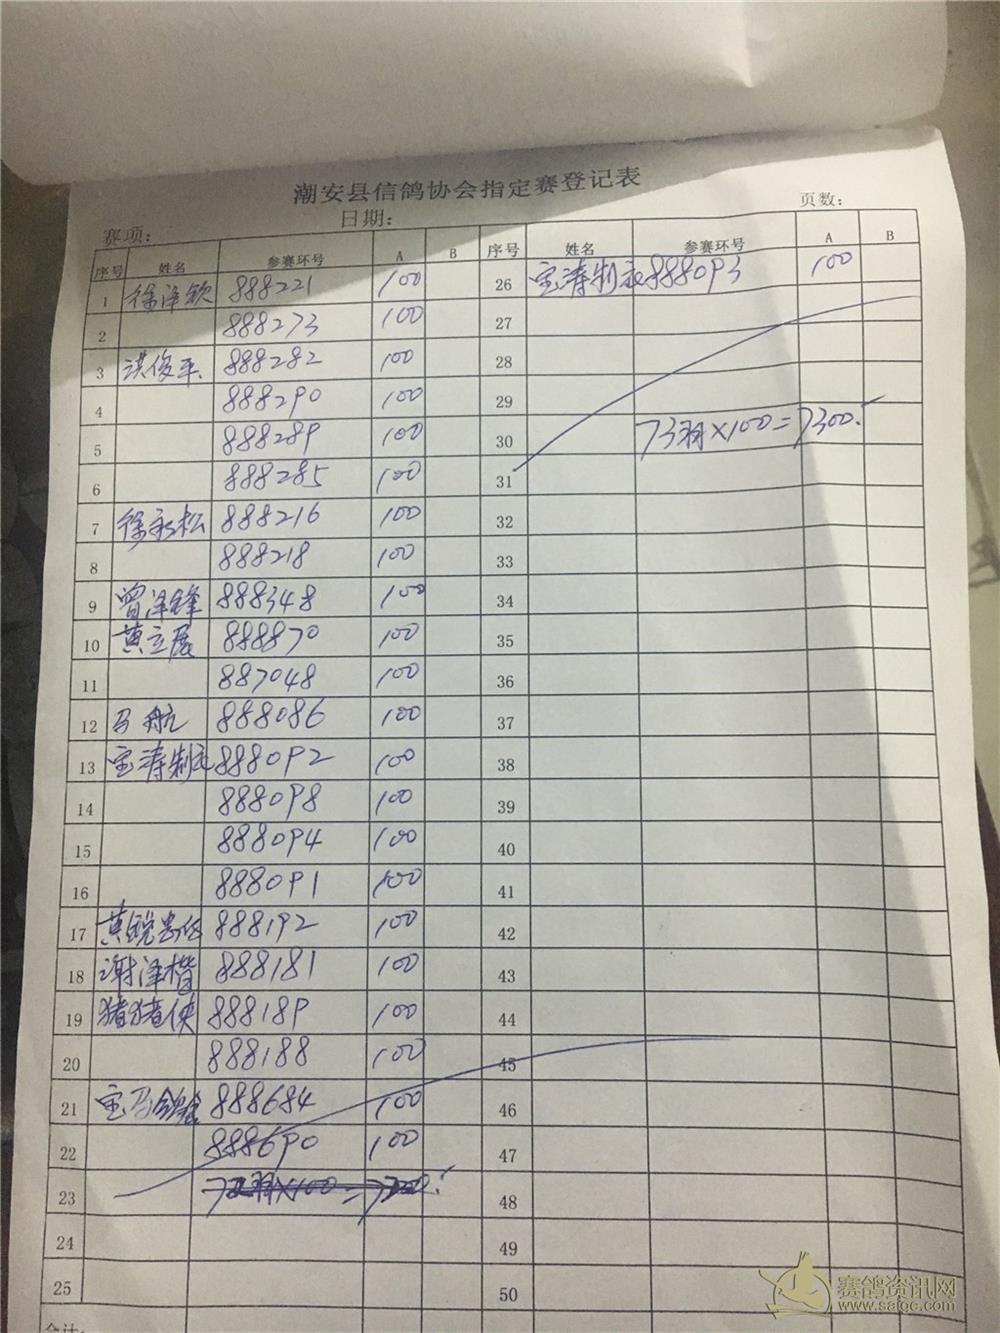 潮安县信鸽协会指定赛登记表
赛项: 日期: 页数:
序号 姓名 参赛环号 A B 序号 姓名 参赛环号 A B
1 徐泽钦 888221 100 26 宝涛制衣 888093 100
2 888273 100 27
3 洪俊平 888282 100 28
4 888290 100 29
5 888289 100 30 73羽×100=7300.
6 888285 100 31
7 徐永松 888216 100 32
8 888218 100 33
9 曾泽锋 888348 100 34
10 黄立展 888870 100 35
11 887048 100 36
12 马航 888086 100 37
13 宝涛制衣 888092 100 38
14 888098 100 39
15 888094 100 40
16 888091 100 41
17 黄锐 888192 100 42
18 谢泽楷 888181 100 43
19 猪猪侠 888189 100 44
20 888188 100 45
21 宝马 888684 100 46
22 888690 100 47
23 48
24 49
25 50
合计:
赛鸽资讯网
www.saigc.com